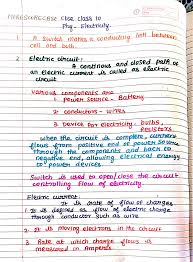 Cbse class 10
Phy - Electricity
1. A switch makes a conducting link between
cell and bulb.
2. Electric circuit :
A continuous and closed path of
an electric current is called as electric
circuit
Various components are
1. Power source - Battery
2. conductors - wires
3. Device for electricity - bulbs,
resistors
when the circuit is complete, current
flows from positive end of power source
through the components and back to
negative end, allowing electrical energy
to power devices.
Switch is used to open/close the circuit
controlling flow of electricity.
Electric current :
It is rate of flow of charges
It is defined as flow of electric charge
through conductor such as wire
It is moving electrons in the circuit
Rate at which charge flows is
measured in Ampere